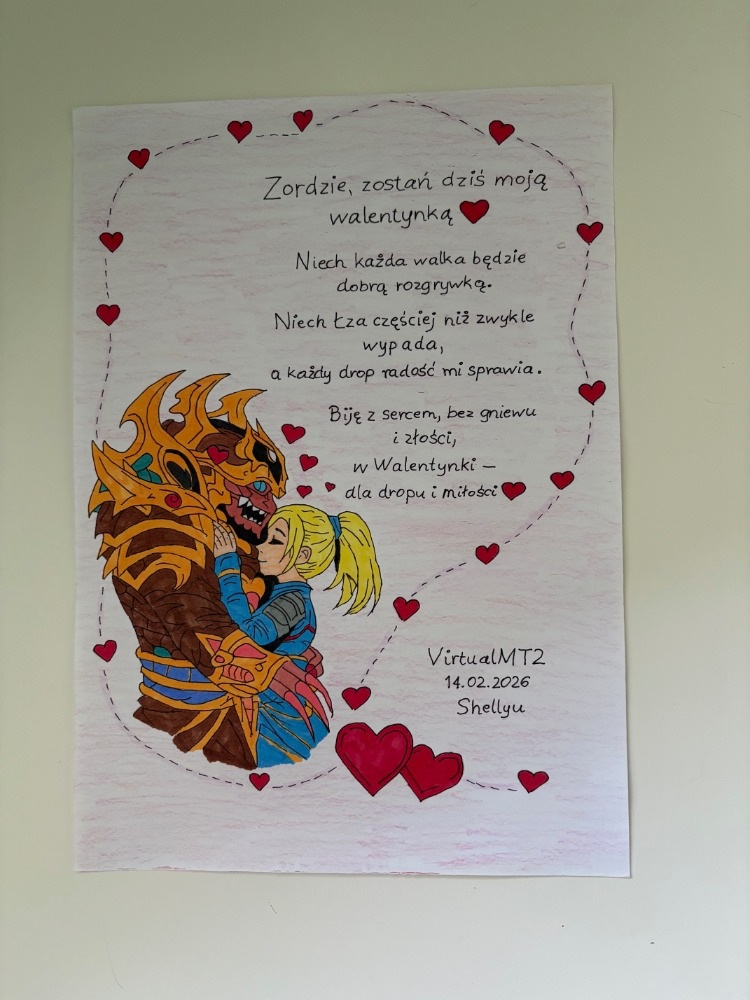 Zordzie, zostań dziś moją
walentynką
Niech każda walka będzie
dobrą rozgrywką.
Niech Łza częściej niż zwykle
wypada,
a każdy drop radość mi sprawia.
Biję z sercem, bez gniewu
i złości,
w Walentynki –
dla dropu i miłości
VirtualMT2
14.02.2026
Shellyu